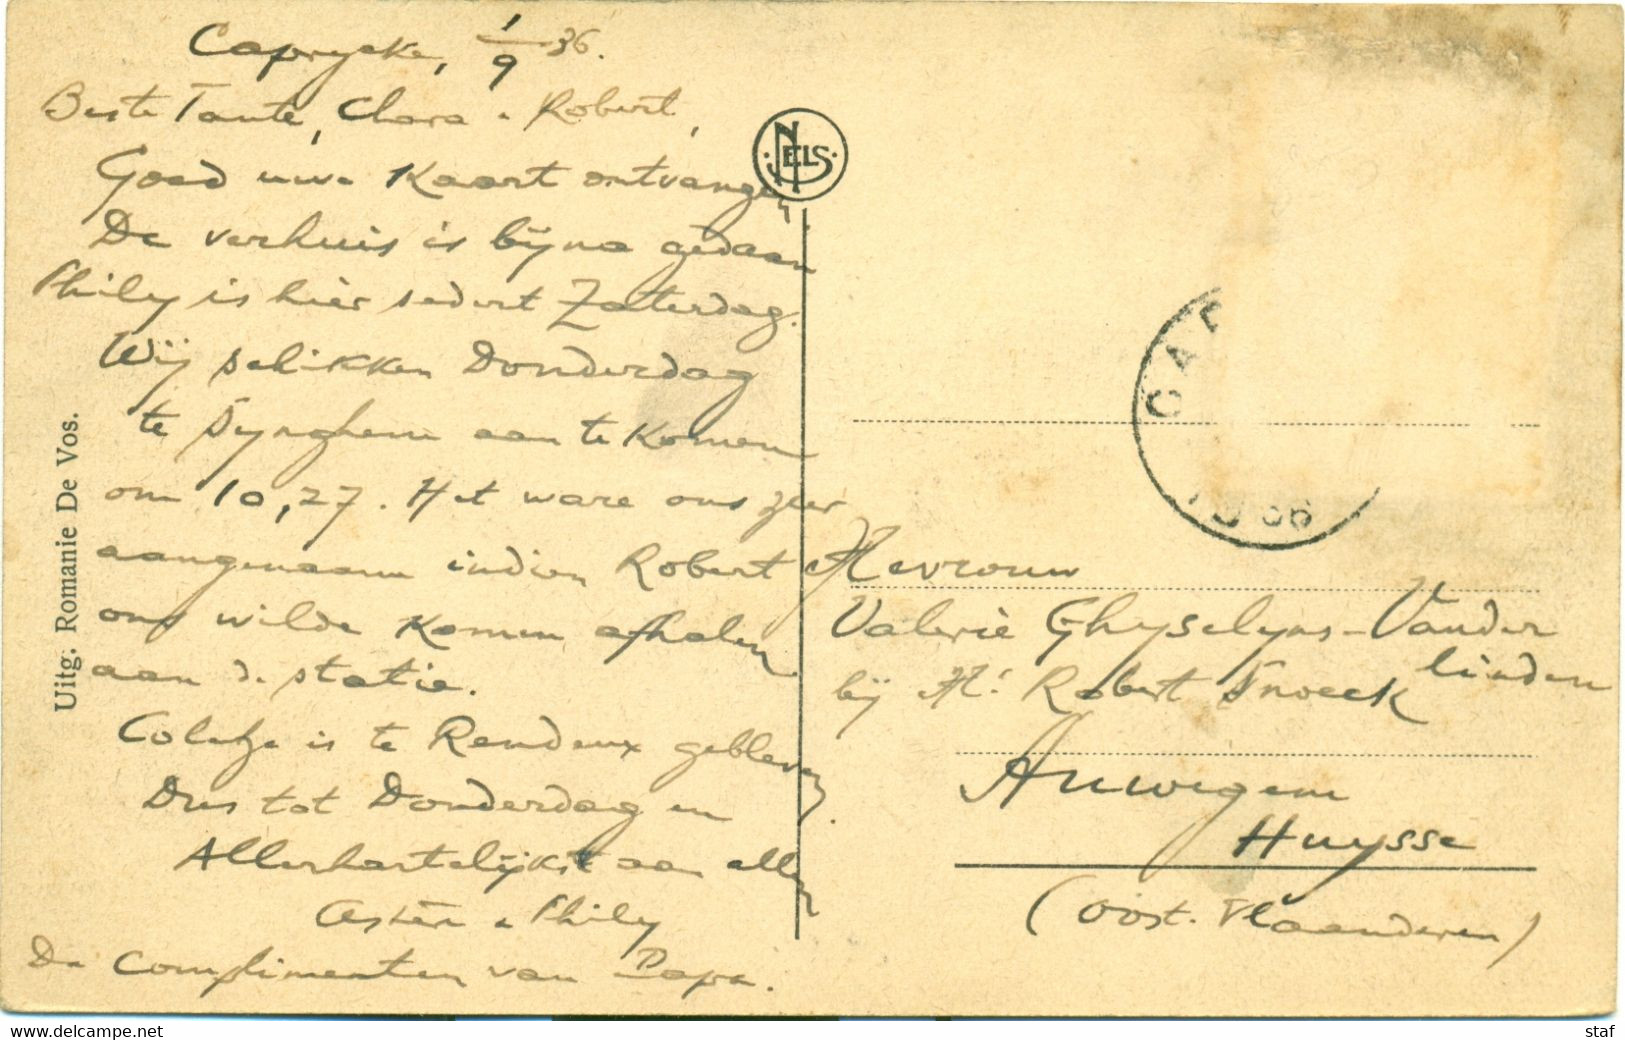 Caprycke, 1/9 36.
Beste Tante, Clara & Robert,
Goed uwe Kaart ontvangen
De verhuis is bijna gedaan
Phily is hier sedert Zaterdag.
Wij schikken Donderdag
te Synghem aan te Komen
om 10,27. Het ware ons zeer
aangenaam indien Robert
ons wilde Komen afhalen
aan de statie.
is te Rendeux gebleven
Dus tot Donderdag en
Allerhartelijkst aan allen
& Phily
De Complimenten van Papa.
Uitg. Romanie De Vos.
NELS
CAP
1936
Mevrouw
Valerie Ghyselyns-Vander
linden
bij Mr Robert Snoeck
Huysse
(Oost. Vlaanderen)
staf